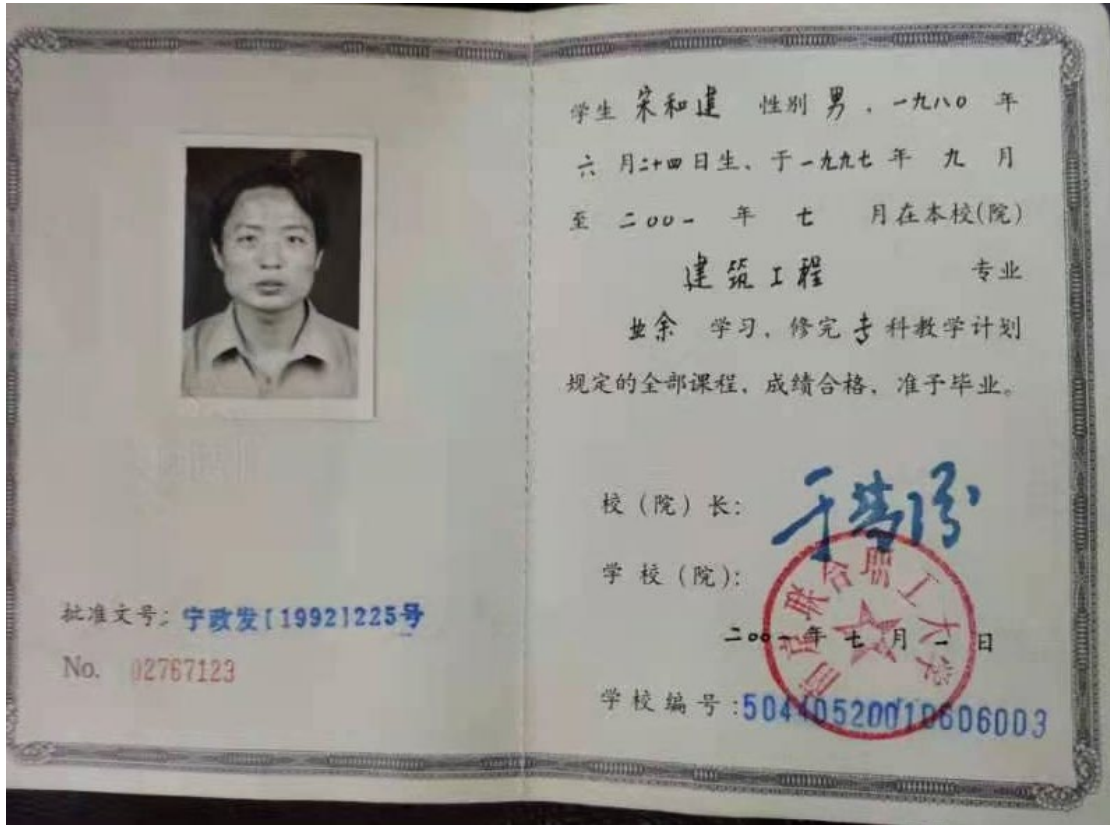 批准文号：宁政发[1992]225号
No. 02767123
学生 宋和建 性别 男，一九八〇 年
六 月二十四日生、于一九九七 年 九 月
至 二〇〇一 年 七 月在本校(院)
建筑工程 专业
业余 学习，修完专科教学计划
规定的全部课程，成绩合格，准予毕业。
校（院）长：
学 校（院）：
南京联合职工大学
二〇〇一年 七 月 一 日
学校编号：50440520010606003